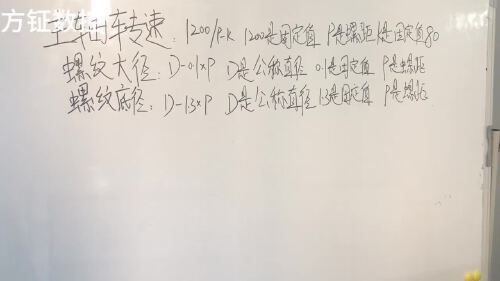 方钲数
主轴转速：1200/P-K 1200是固定值 P是螺距 K是固定值80
螺纹大径：D-0.1×P D是公称直径 0.1是固定值 P是螺距
螺纹底径：D-1.3×P D是公称直径 1.3是固定值 P是螺距